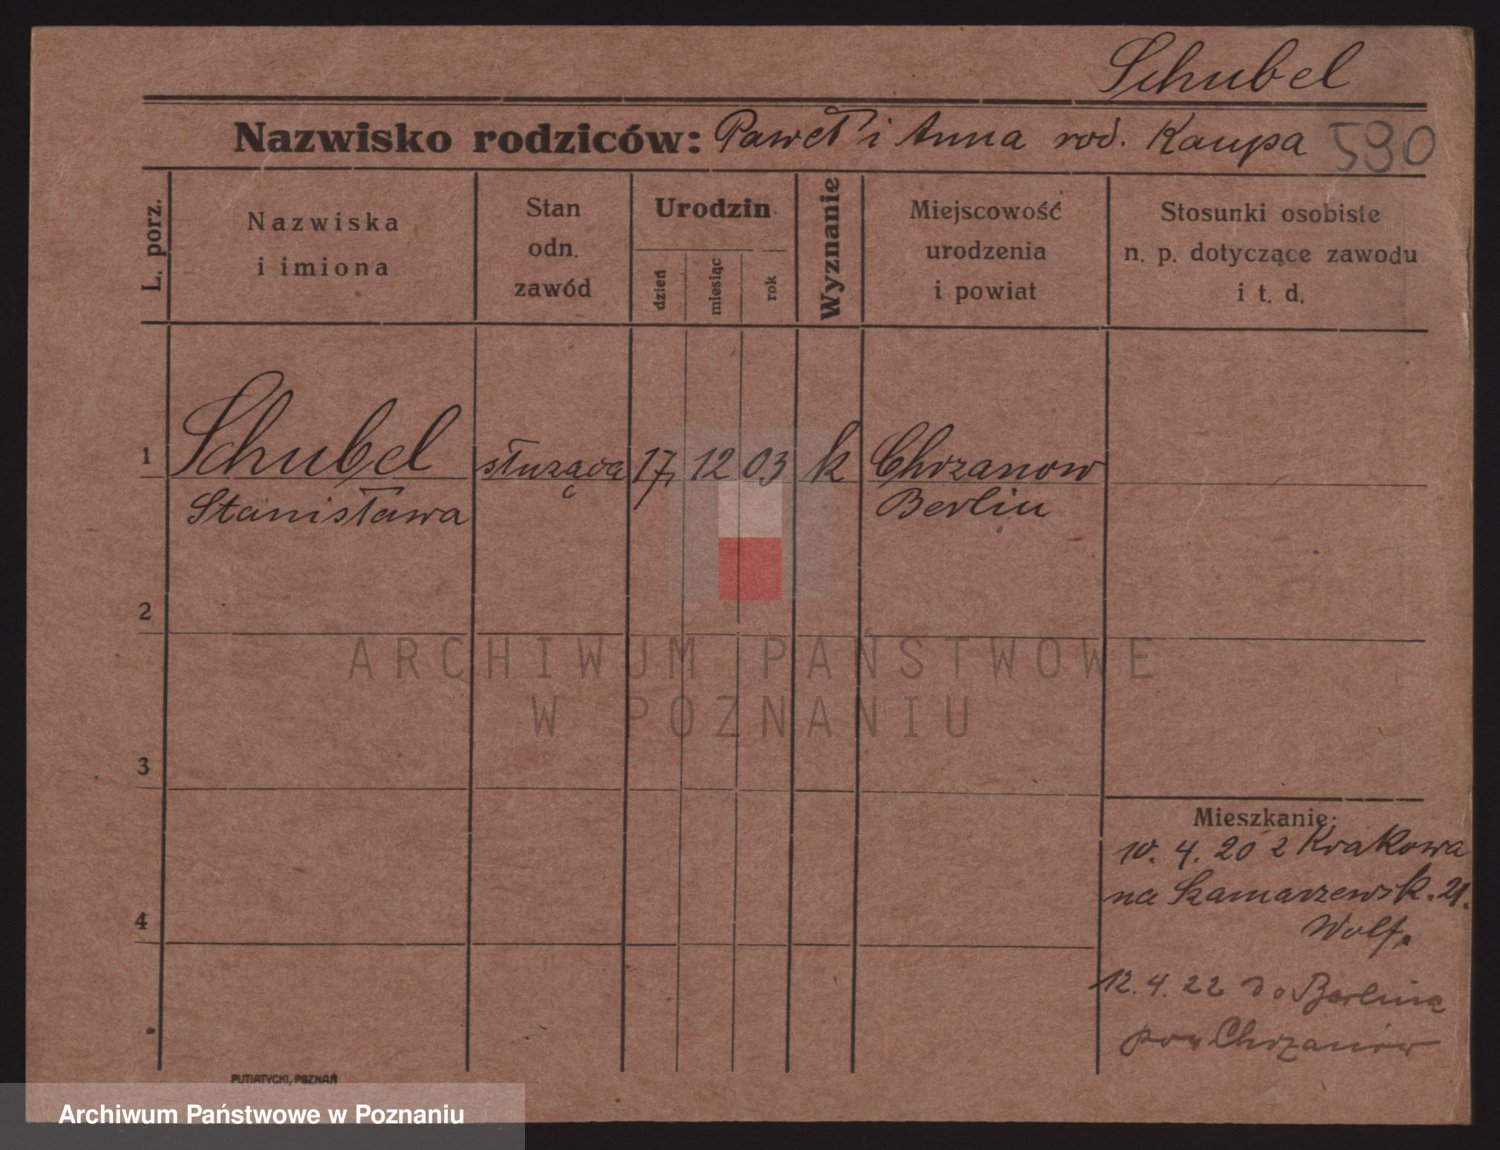 Schubel
Nazwisko rodziców: Paweł i Anna rod. Kaupa 590
L. porz.
Nazwiska
i imiona
Stan
odn.
zawód
Urodzin
dzień
miesiąc
rok
Wyznanie
Miejscowość
urodzenia
i powiat
Stosunki osobiste
n. p. dotyczące zawodu
i t. d.
1 Schubel służąca 17, 12 03 k Chrzanow
Stanisława Berlin
2
ARCHIWUM PAŃSTWOWE
W POZNANIU
3
Mieszkanie:
10. 4. 20 z Krakowa
na Szamarzewsk. 21.
Wolf.
4
12. 4. 22 do Berlina
pow Chrzanów
PUTIATYCKI, POZNAŃ
Archiwum Państwowe w Poznaniu